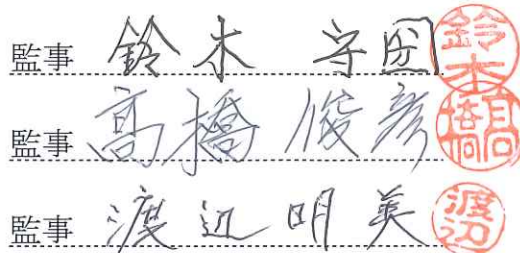 監事 鈴木 守 鈴木
監事 高橋 俊彦 髙橋
監事 渡辺 明美 渡辺